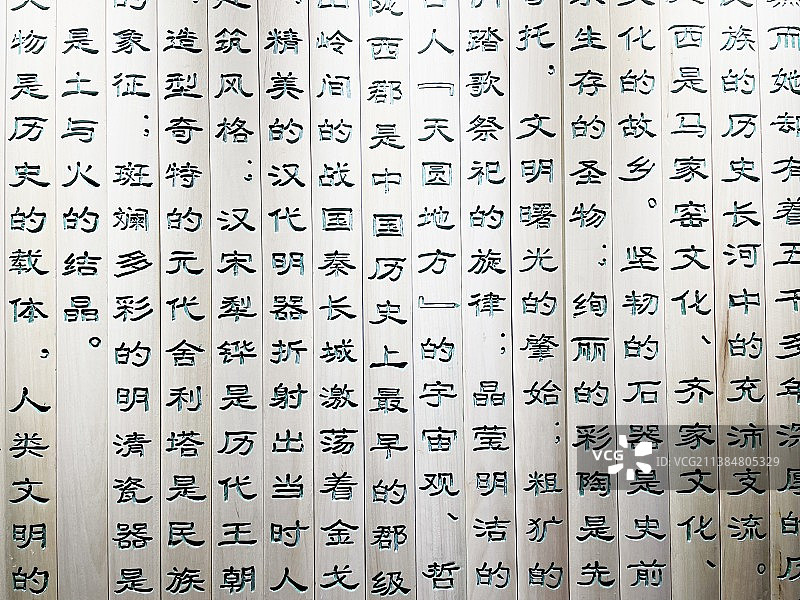 而她却有着五千多年深厚的历
族的历史长河中的充沛支流。
西是马家窑文化、齐家文化、
化的故乡。坚韧的石器是史前
生存的圣物;绚丽的彩陶是先
托,文明曙光的肇始;粗犷的
踏歌祭祀的旋律;晶莹明洁的
人『天圆地方』的宇宙观、哲
陇西郡是中国历史上最早的郡级
岭间的战国秦长城激荡着金戈
精美的汉代明器折射出当时人
筑风格;汉宋犁铧是历代王朝
造型奇特的元代舍利塔是民族
的象征;斑斓多彩的明清瓷器是
是土与火的结晶。
物是历史的载体,人类文明的
VCG 视觉中国
ID:VCG211384805329